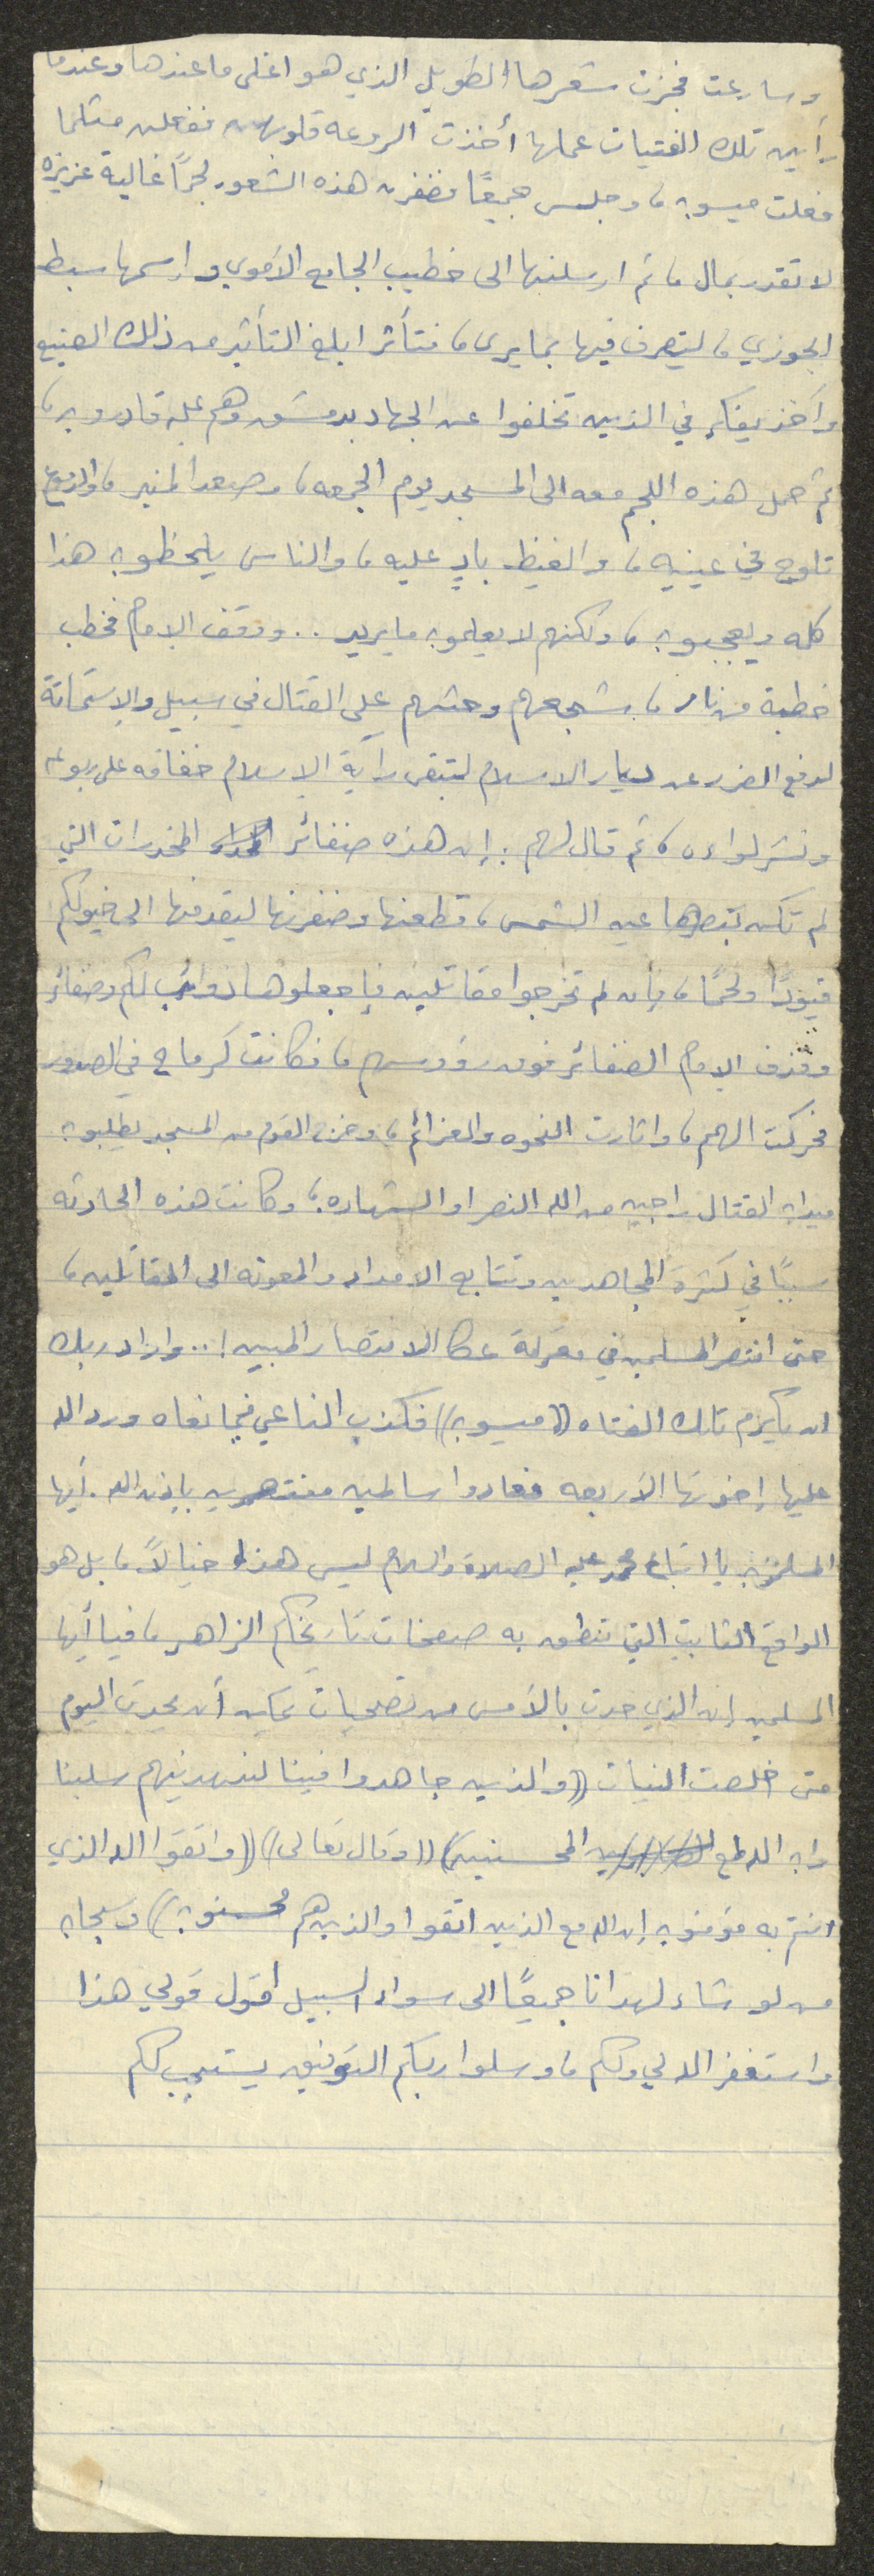 وسارعت فجزت شعرها الطويل الذي هو اغلى ما عندها وعندما
رأين تلك الفتيات عملها أخذت الروعه قلوبهن ففعلن مثلما
فعلت ميسون، وجلس جميعًا يضفرن هذه الشعور لجمًا غالية عزيزه
لا تقدر بمال، ثم ارسلنها الى خطيب الجامع الأموي واسمها سبط
الجوزي، ليتصرف فيها بما يرى، فتأثر ابلغ التأثير من ذلك الصنيع
وأخذ يفكر في الذين تخلفوا عن الجهاد بدمشق وهم عليه قادرون،
ثم حمل هذه اللجم معه الى المسجد يوم الجمعه، وصعد المنبر، والدموع
تلوح في عينيه، والغيظ بادٍ عليه، والناس يلحظون هذا
كله ويعجبون، ولكنهم لا يعلمون ما يريد .. ووقف الإمام فخطب
خطبة من نار، شجعهم وحثهم على القتال في سبيل والإستماتة
لدفع الضرر عن ديار الاسلام لتبقى رآية الإسلام خفاقه على ربوعه
ونشر لواءه، ثم قال لهم: إن هذه ضفائر المخدرات التي
لم تكن تبصرها عين الشمس، قطعنها وضفرنها ليقدمنها الى خيولكم
قيودًا ولجمًا، فإن لم تخرجوا مقاتلين فإجعلوها ذوائب لكم وضفائر
وقذف الإمام الضفائر فوق رؤوسهم، فكانت كرماح في الصدور
فحركت الهمم، واثارت النخوه والعزائم، وخرج القوم من المسجد يطلبون
ميدان القتال راجين من الله النصر او الشهاده، وكانت هذه الحادثه
سببًا في كثرة المجاهدين وتتابع الامداد والمعونه الى المقاتلين،
حتى انتصر المسلمين في معركة عكا الانتصار المبين!.. واراد ربك
ان يكرم تلك الفتاه ((ميسون)) فكذب الناعي فيما نعاه ورد الله
عليها إخوتها الأربعه فعادوا سالمين منتصرين بإذن الله. أيها
المسلمون يا اتباع محمد عليه الصلاة والسلام ليس هذا خيالاً، بل هو
الواقع الثابت التي تنطق به صفحات تاريخكم الزاهر، فيا أيها
المسلمين إن الذي حدث بالأمس من تضحيات يمكن أن يحدث اليوم
متى خلصت النيات ((والذين جاهدوا فينا لنهدينهم سبلنا
وان الله لمع المحسنين)) ((وقال تعالى)) ((واتقوا الله الذي
انتم به مؤمنون إن الله مع الذين اتقوا والذين هم محسنون)) وسبحان
من لو شاء لهدانا جميعًا الى سواء السبيل اقول قولي هذا
واستغفر الله لي ولكم، وسلوا ربكم التوفيق يستجب لكم